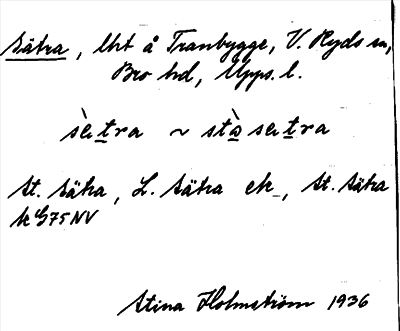 Sätra, lht å Tranbygge, V. Ryds sn,
Bro hd, Upps. l.
sè̀tra ~ stà sætra
St. Sätra, L. Sätra ek, St. Sätra
k G75NV
Stina Holmström 1936